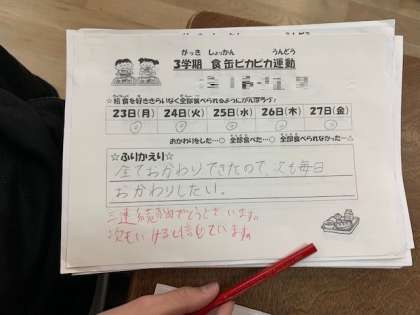 がっき しょっかん うんどう
3学期 食缶ピカピカ運動
☆給食を好ききらいなく全部食べられるようにがんばろう♪
23日(月) 24日(火) 25日(水) 26日(木) 27日(金)
◎ ◎ ◎ ◎ ◎
おかわりをした…◎ 全部食べた…○ 全部食べられなかった…△
☆ふりかえり☆
全ておかわりできたので、次も毎日
おかわりしたい。
三連続おめでとうございます。
次もいけると信じています。